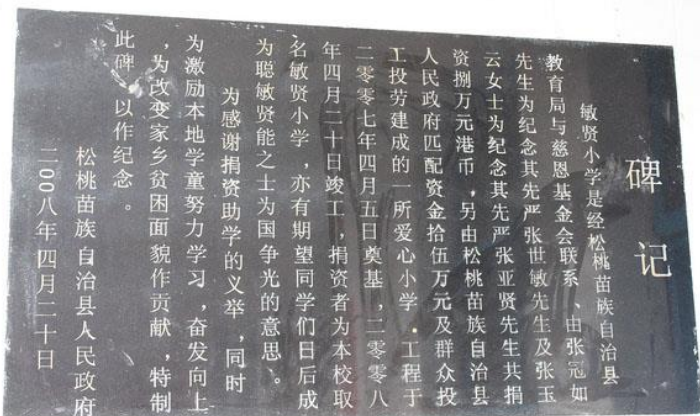 碑记
敏贤小学是经松桃苗族自治县
教育局与慈恩基金会联系、由张冠如
先生为纪念其先严张世敏先生及张玉
云女士为纪念其先严张亚贤先生共捐
资捌万元港币，另由松桃苗族自治县
人民政府匹配资金拾伍万元及群众投
工投劳建成的一所爱心小学．工程于
二零零七年四月五日奠基，二零零八
年四月二十日竣工，捐资者为本校取
名敏贤小学，亦有期望同学们日后成
为聪敏贤能之士为国争光的意思、。
为感谢捐资助学的义举，同时
为激励本地学童努力学习，奋发向上
，为改变家乡贫困面貌作贡献，特制
此碑，以作纪念。
松桃苗族自治县人民政府
二00八年四月二十日